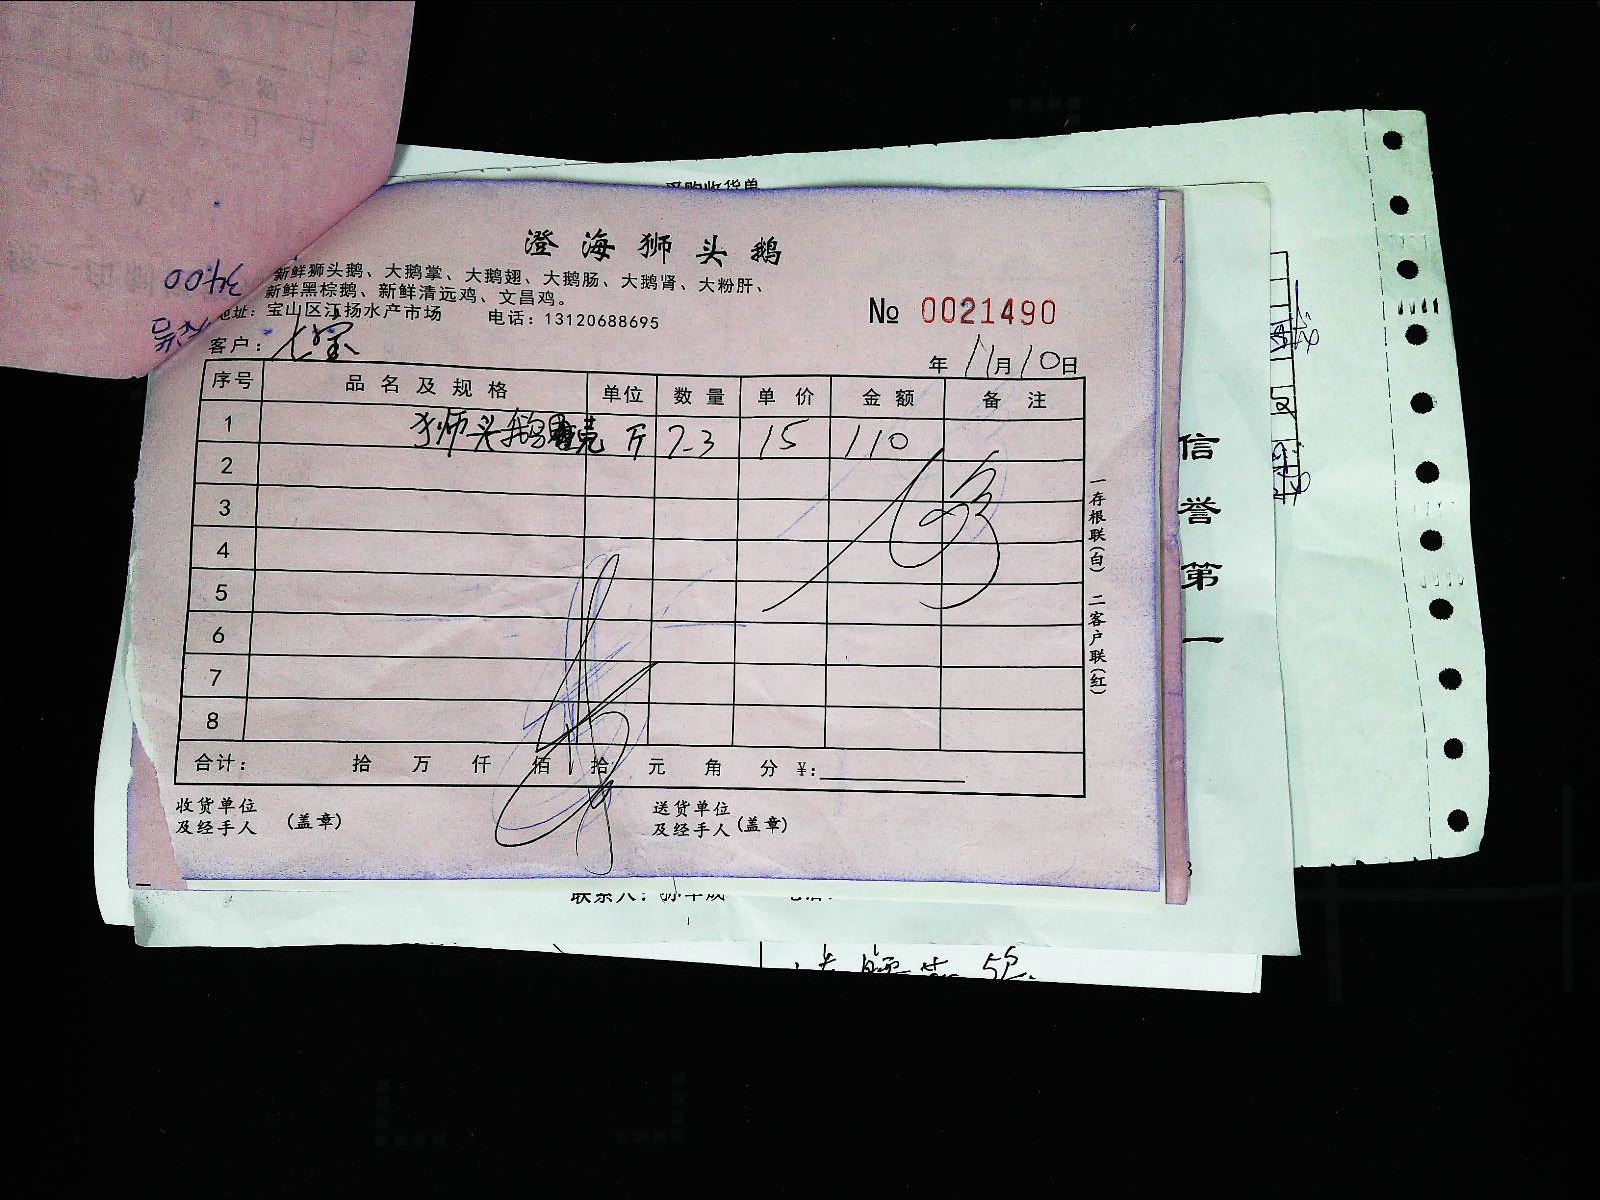 采购收货单
澄海狮头鹅
新鲜狮头鹅、大鹅掌、大鹅翅、大鹅肠、大鹅肾、大粉肝、
新鲜黑棕鹅、新鲜清远鸡、文昌鸡。
地址：宝山区江扬水产市场 电话：13120688695
№ 0021490
客户：七宝
年 11月10日
序号 品名及规格 单位 数量 单价 金额 备注
1 狮头鹅 壳 斤 7.3 15 110
2
3
4
5
6
7
8
合计： 拾 万 仟 佰 拾 元 角 分 ¥:
收货单位
及经手人 (盖章)
送货单位
及经手人 (盖章)
一存根联(白) 二客户联(红)
信誉第一
3400